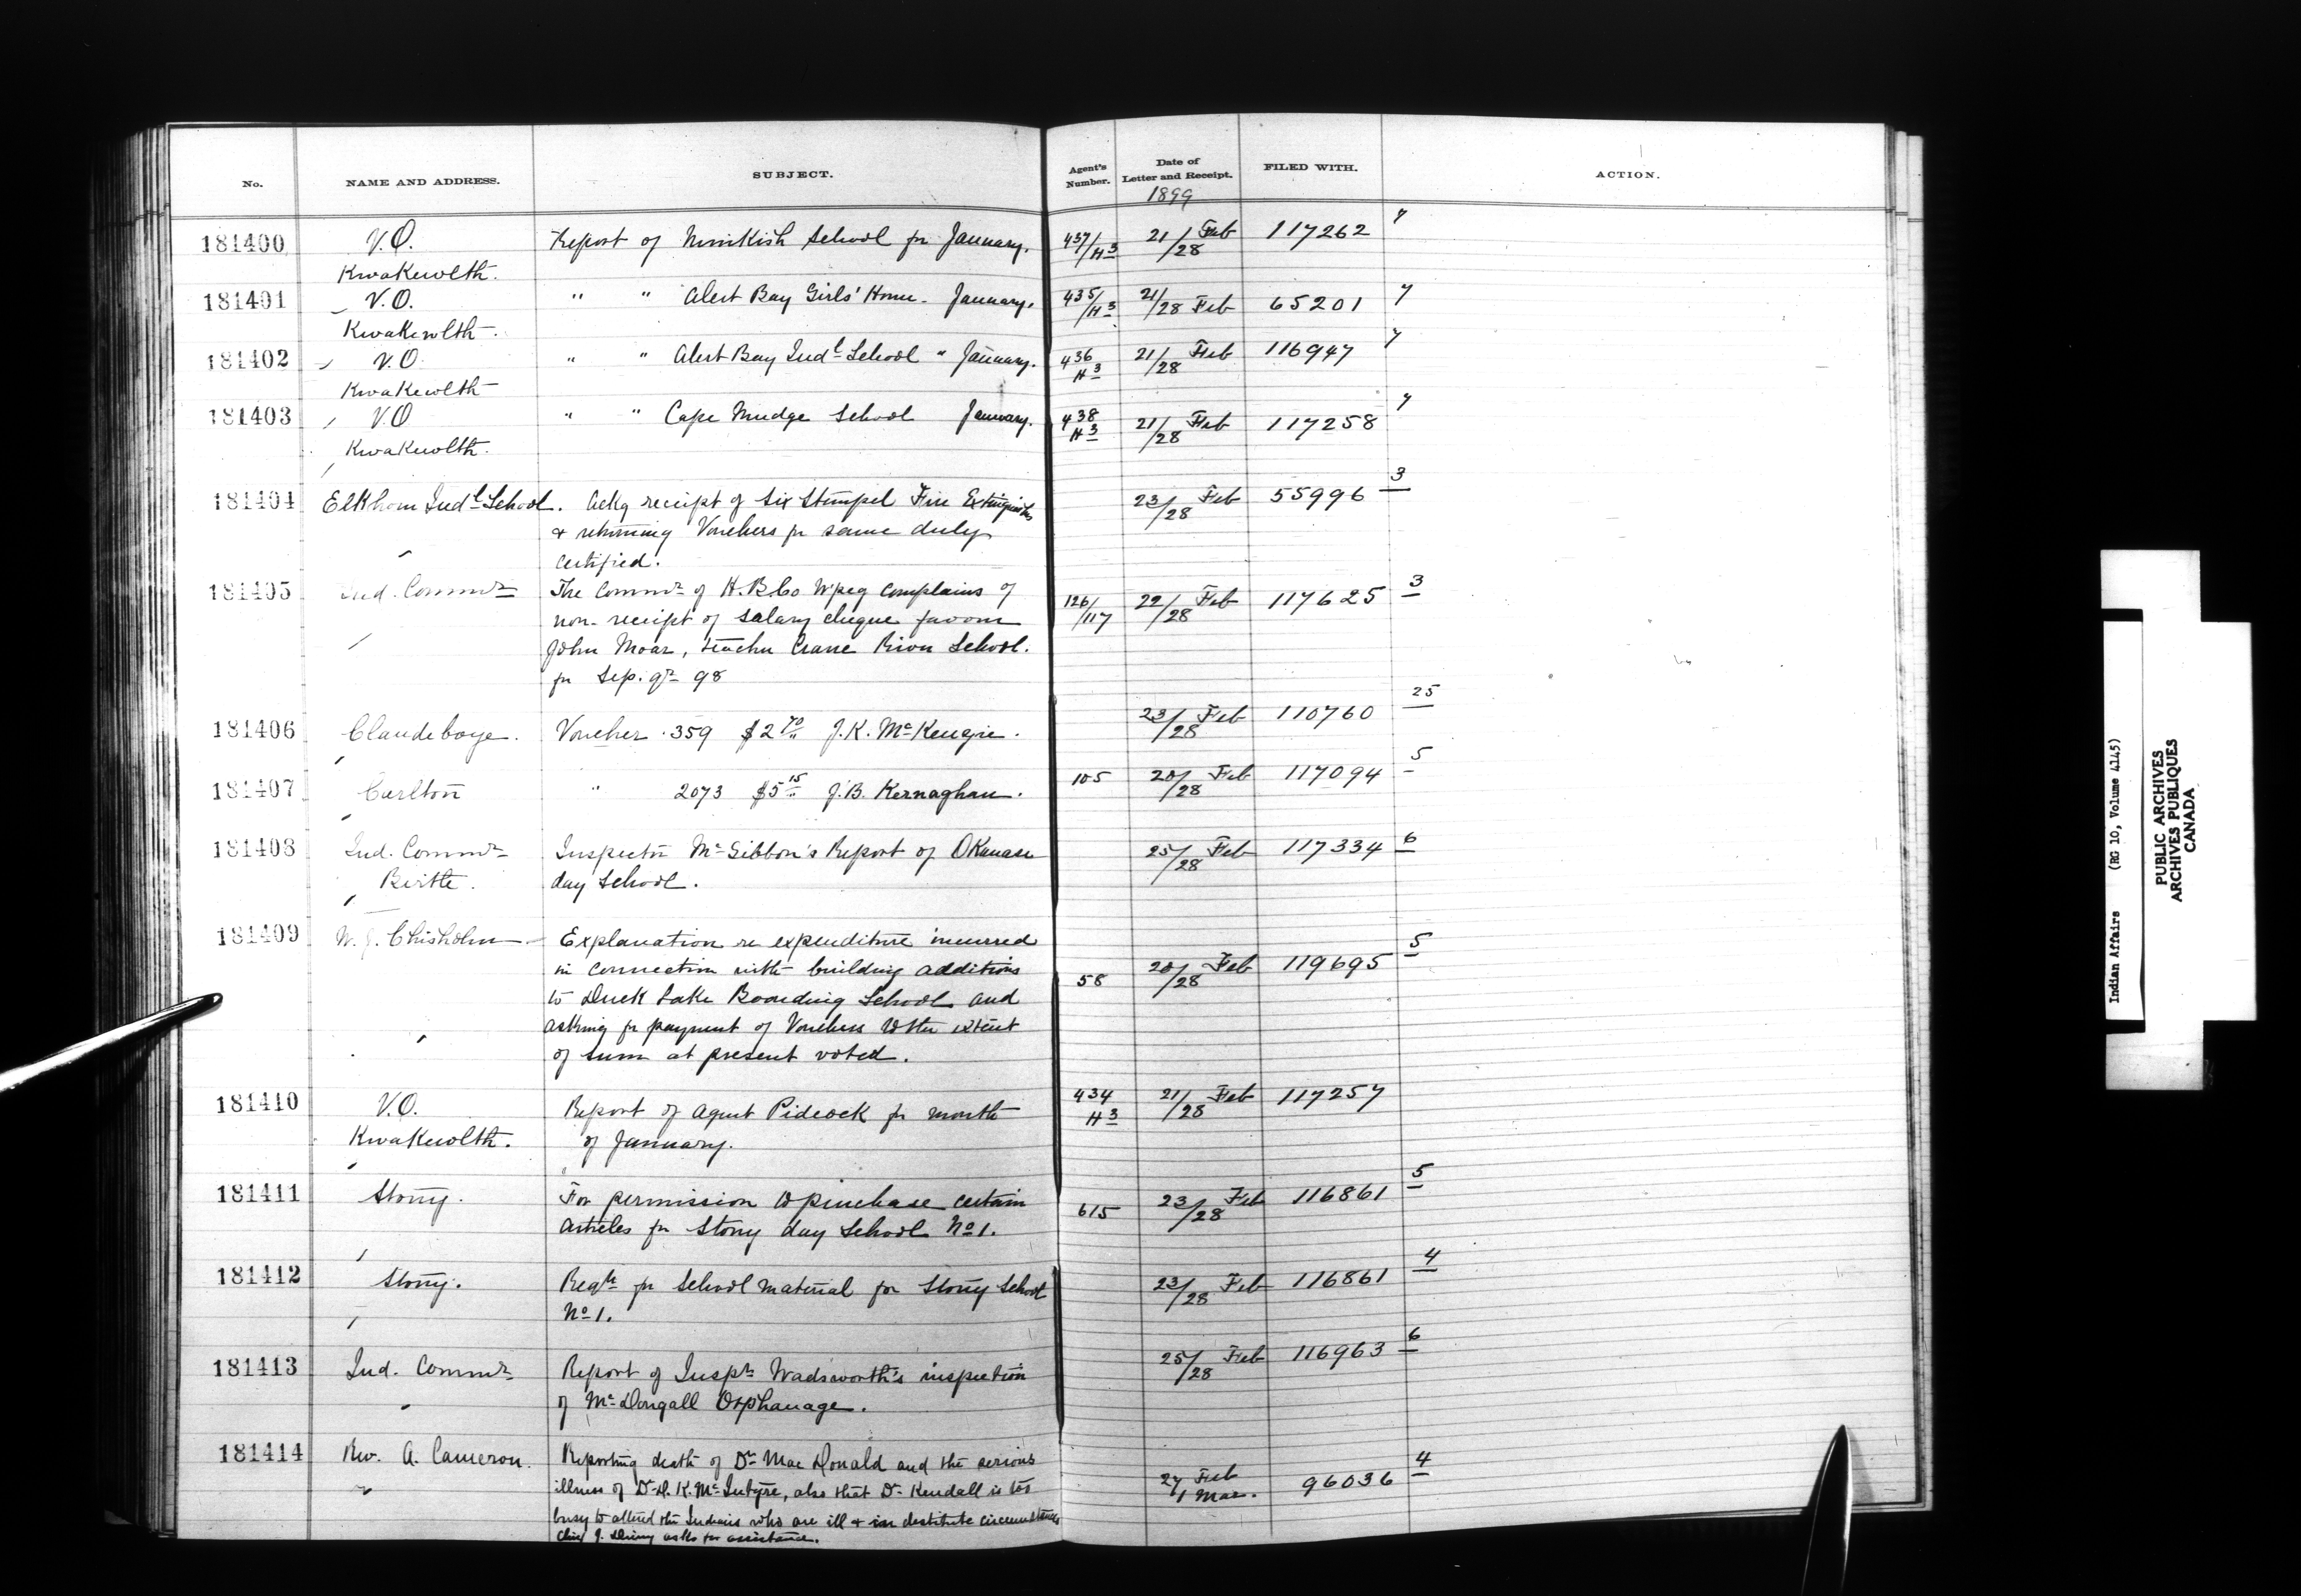 No. NAME AND ADDRESS. SUBJECT. Agent's Number. Date of Letter and Receipt. FILED WITH. ACTION.
1899
181400 V.O. Report of Nimkish School for January. 437/H3 21/28 Feb 117262 7
Kwakewlth.
181401 V.O. " " Alert Bay Girls' Home - January. 435/H3 21/28 Feb 65201 7
Kwakewlth.
181402 V.O. " " Alert Bay Indl School " January. 436 H3 21/28 Feb 116947 7
Kwakewlth
181403 V.O " " Cape Mudge School January. 438 H3 21/28 Feb 117258 7
Kwakewlth.
181404 Elkhorn Indl School. Ackg receipt of six Stempel Fire Extinguishers 23/28 Feb 55996 3
& returning Vouchers for same duly
certified.
181405 Ind. Commr The Commr of H.B.Co Wpeg complains of 126/117 22/28 Feb 117625 3
non-receipt of salary cheque favour
John Moar, teacher Crane River School.
for Sep. qr 98
181406 Clandeboye. Voucher 359 $2 70 J.K. McKenzie. 23/28 Feb 110760 25
181407 Carlton " 2073 $5 15 J.B. Kernaghan. 105 20/28 Feb 117094 5
181408 Ind. Commr Inspector McGibbon's Report of Okanase 25/28 Feb 117334 6
Birtle. day School.
181409 W.J. Chisholm Explanation re expenditure incurred
in connection with building additions 58 20/28 Feb 119695 5
to Duck Lake Boarding School and
asking for payment of Vouchers to the extent
of sum at present voted.
181410 V.O. Report of Agent Pidcock for month 434 H3 21/28 Feb 117257
Kwakewlth. of January.
181411 Stony. For permission to purchase certain 615 23/28 Feb 116861 5
articles for Stony day School No 1.
181412 Stony. Reqn for School material for Stony School 23/28 Feb 116861 4
No 1.
181413 Ind. Commr Report of Inspr Wadsworth's inspection 25/28 Feb 116963 6
of McDougall Orphanage.
181414 Rev. A. Cameron. Reporting death of Dr MacDonald and the serious
illness of Dr D.K. McIntyre, also that Dr Kendall is too 27 Feb 1 Mar. 96036 4
busy to attend the Indians who are ill & in destitute circumstances
Chief J. Denny asks for assistance.
Indian Affairs (RG 10, Volume 4145)
PUBLIC ARCHIVES
ARCHIVES PUBLIQUES
CANADA